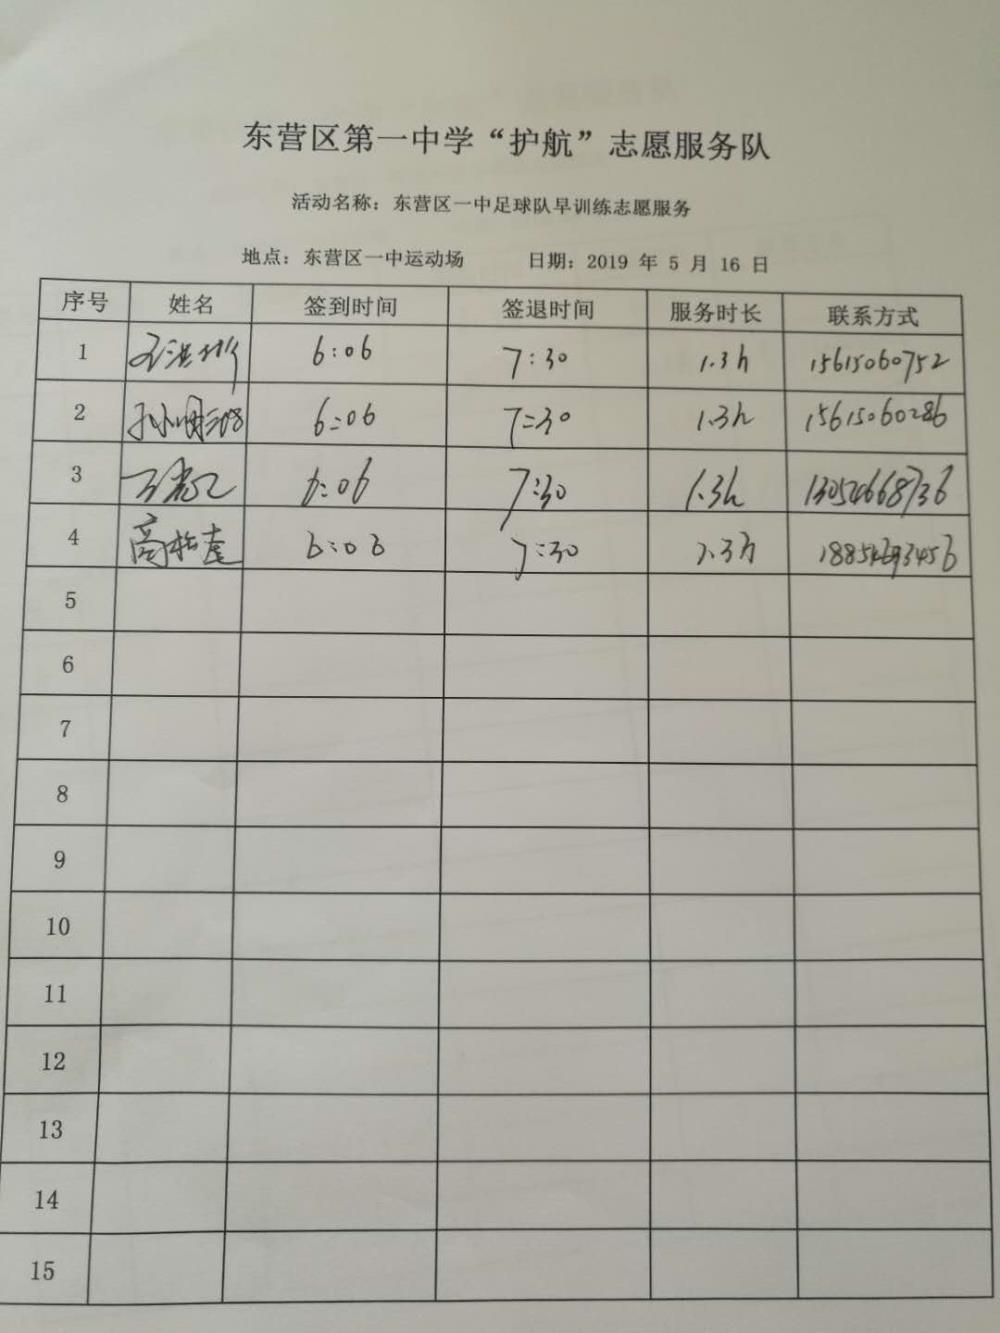 东营区第一中学“护航”志愿服务队
活动名称：东营区一中足球队早训练志愿服务
地点：东营区一中运动场 日期：2019 年 5 月 16 日
序号 姓名 签到时间 签退时间 服务时长 联系方式
1 6:06 7:30 1.3h 15615060752
2 6:06 7:30 1.3h 15615060286
3 6:06 7:30 1.3h 13054668736
4 6:06 7:30 1.3h
5
6
7
8
9
10
11
12
13
14
15